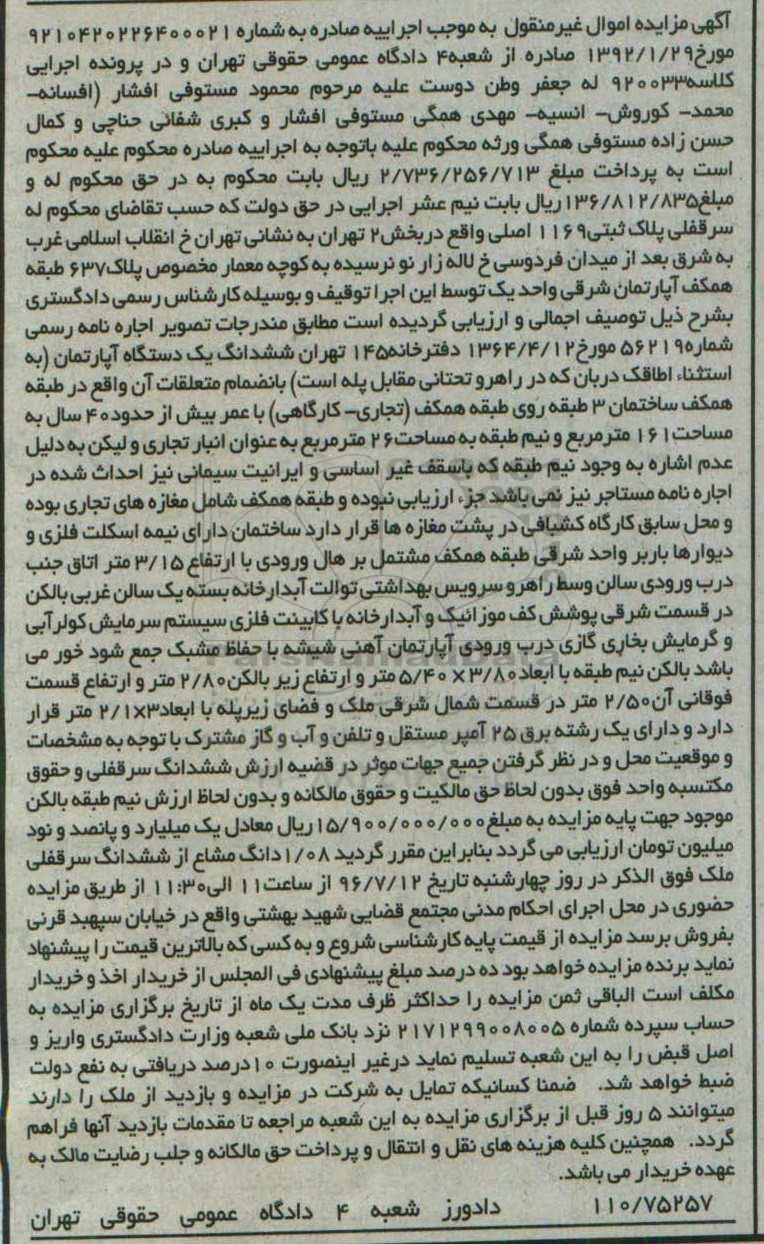 آگهی مزایده اموال غیرمنقول به موجب اجراییه صادره به شماره ۹۲۱۰۴۲۰۲۲۶۴۰۰۰۲۱
مورخ۱۳۹۲/۱/۲۹ صادره از شعبه۴ دادگاه عمومی حقوقی تهران و در پرونده اجرایی
کلاسه۹۲۰۰۳۳ له جعفر وطن دوست علیه مرحوم محمود مستوفی افشار (افسانه-
محمد- کوروش- انسیه- مهدی همگی مستوفی افشار و کبری شفائی حناچی و کمال
حسن زاده مستوفی همگی ورثه محکوم علیه باتوجه به اجراییه صادره محکوم علیه محکوم
است به پرداخت مبلغ ۲/۷۳۶/۲۵۶/۷۱۳ ریال بابت محکوم به در حق محکوم له و
مبلغ۱۳۶/۸۱۲/۸۳۵ریال بابت نیم عشر اجرایی در حق دولت که حسب تقاضای محکوم له
سرقفلی پلاک ثبتی۱۱۶۹ اصلی واقع دربخش۲ تهران به نشانی تهران خ انقلاب اسلامی غرب
به شرق بعد از میدان فردوسی خ لاله زار نو نرسیده به کوچه معمار مخصوص پلاک۶۳۷ طبقه
همکف آپارتمان شرقی واحد یک توسط این اجرا توقیف و بوسیله کارشناس رسمی دادگستری
بشرح ذیل توصیف اجمالی و ارزیابی گردیده است مطابق مندرجات تصویر اجاره نامه رسمی
شماره۵۶۲۱۹ مورخ۱۳۶۴/۴/۱۲ دفترخانه۱۴۵ تهران ششدانگ یک دستگاه آپارتمان (به
استثناء اطاقک دربان که در راهرو تحتانی مقابل پله است) بانضمام متعلقات آن واقع در طبقه
همکف ساختمان ۳ طبقه روی طبقه همکف (تجاری- کارگاهی) با عمر بیش از حدود۴۰ سال به
مساحت۱۶۱ مترمربع و نیم طبقه به مساحت۲۶ مترمربع به عنوان انبار تجاری و لیکن به دلیل
عدم اشاره به وجود نیم طبقه که باسقف غیر اساسی و ایرانیت سیمانی نیز احداث شده در
اجاره نامه مستاجر نیز نمی باشد جزء ارزیابی نبوده و طبقه همکف شامل مغازه های تجاری بوده
و محل سابق کارگاه کشبافی در پشت مغازه ها قرار دارد ساختمان دارای نیمه اسکلت فلزی و
دیوارها باربر واحد شرقی طبقه همکف مشتمل بر هال ورودی با ارتفاع ۳/۱۵ متر اتاق جنب
درب ورودی سالن وسط راهرو سرویس بهداشتی توالت آبدارخانه بسته یک سالن غربی بالکن
در قسمت شرقی پوشش کف موزائیک و آبدارخانه با کابینت فلزی سیستم سرمایش کولرآبی
و گرمایش بخاری گازی درب ورودی آپارتمان آهنی شیشه با حفاظ مشبک جمع شود خور می
باشد بالکن نیم طبقه با ابعاد۳/۸۰ × ۵/۴۰ متر و ارتفاع زیر بالکن۲/۸۰ متر و ارتفاع قسمت
فوقانی آن۲/۵۰ متر در قسمت شمال شرقی ملک و فضای زیرپله با ابعاد۳×۲/۱ متر قرار
دارد و دارای یک رشته برق ۲۵ آمپر مستقل و تلفن و آب و گاز مشترک با توجه به مشخصات
و موقعیت محل و در نظر گرفتن جمیع جهات موثر در قضیه ارزش ششدانگ سرقفلی و حقوق
مکتسبه واحد فوق بدون لحاظ حق مالکیت و حقوق مالکانه و بدون لحاظ ارزش نیم طبقه بالکن
موجود جهت پایه مزایده به مبلغ۱۵/۹۰۰/۰۰۰/۰۰۰ریال معادل یک میلیارد و پانصد و نود
میلیون تومان ارزیابی می گردد بنابراین مقرر گردید ۱/۰۸دانگ مشاع از ششدانگ سرقفلی
ملک فوق الذکر در روز چهارشنبه تاریخ ۹۶/۷/۱۲ از ساعت۱۱ الی۱۱:۳۰ از طریق مزایده
حضوری در محل اجرای احکام مدنی مجتمع قضایی شهید بهشتی واقع در خیابان سپهبد قرنی
بفروش برسد مزایده از قیمت پایه کارشناسی شروع و به کسی که بالاترین قیمت را پیشنهاد
نماید برنده مزایده خواهد بود ده درصد مبلغ پیشنهادی فی المجلس از خریدار اخذ و خریدار
مکلف است الباقی ثمن مزایده را حداکثر ظرف مدت یک ماه از تاریخ برگزاری مزایده به
حساب سپرده شماره ۲۱۷۱۲۹۹۰۰۸۰۰۵ نزد بانک ملی شعبه وزارت دادگستری واریز و
اصل قبض را به این شعبه تسلیم نماید درغیر اینصورت ۱۰درصد دریافتی به نفع دولت
ضبط خواهد شد. ضمنا کسانیکه تمایل به شرکت در مزایده و بازدید از ملک را دارند
میتوانند ۵ روز قبل از برگزاری مزایده به این شعبه مراجعه تا مقدمات بازدید آنها فراهم
گردد. همچنین کلیه هزینه های نقل و انتقال و پرداخت حق مالکانه و جلب رضایت مالک به
عهده خریدار می باشد.
۱۱۰/۷۵۲۵۷ دادورز شعبه ۴ دادگاه عمومی حقوقی تهران